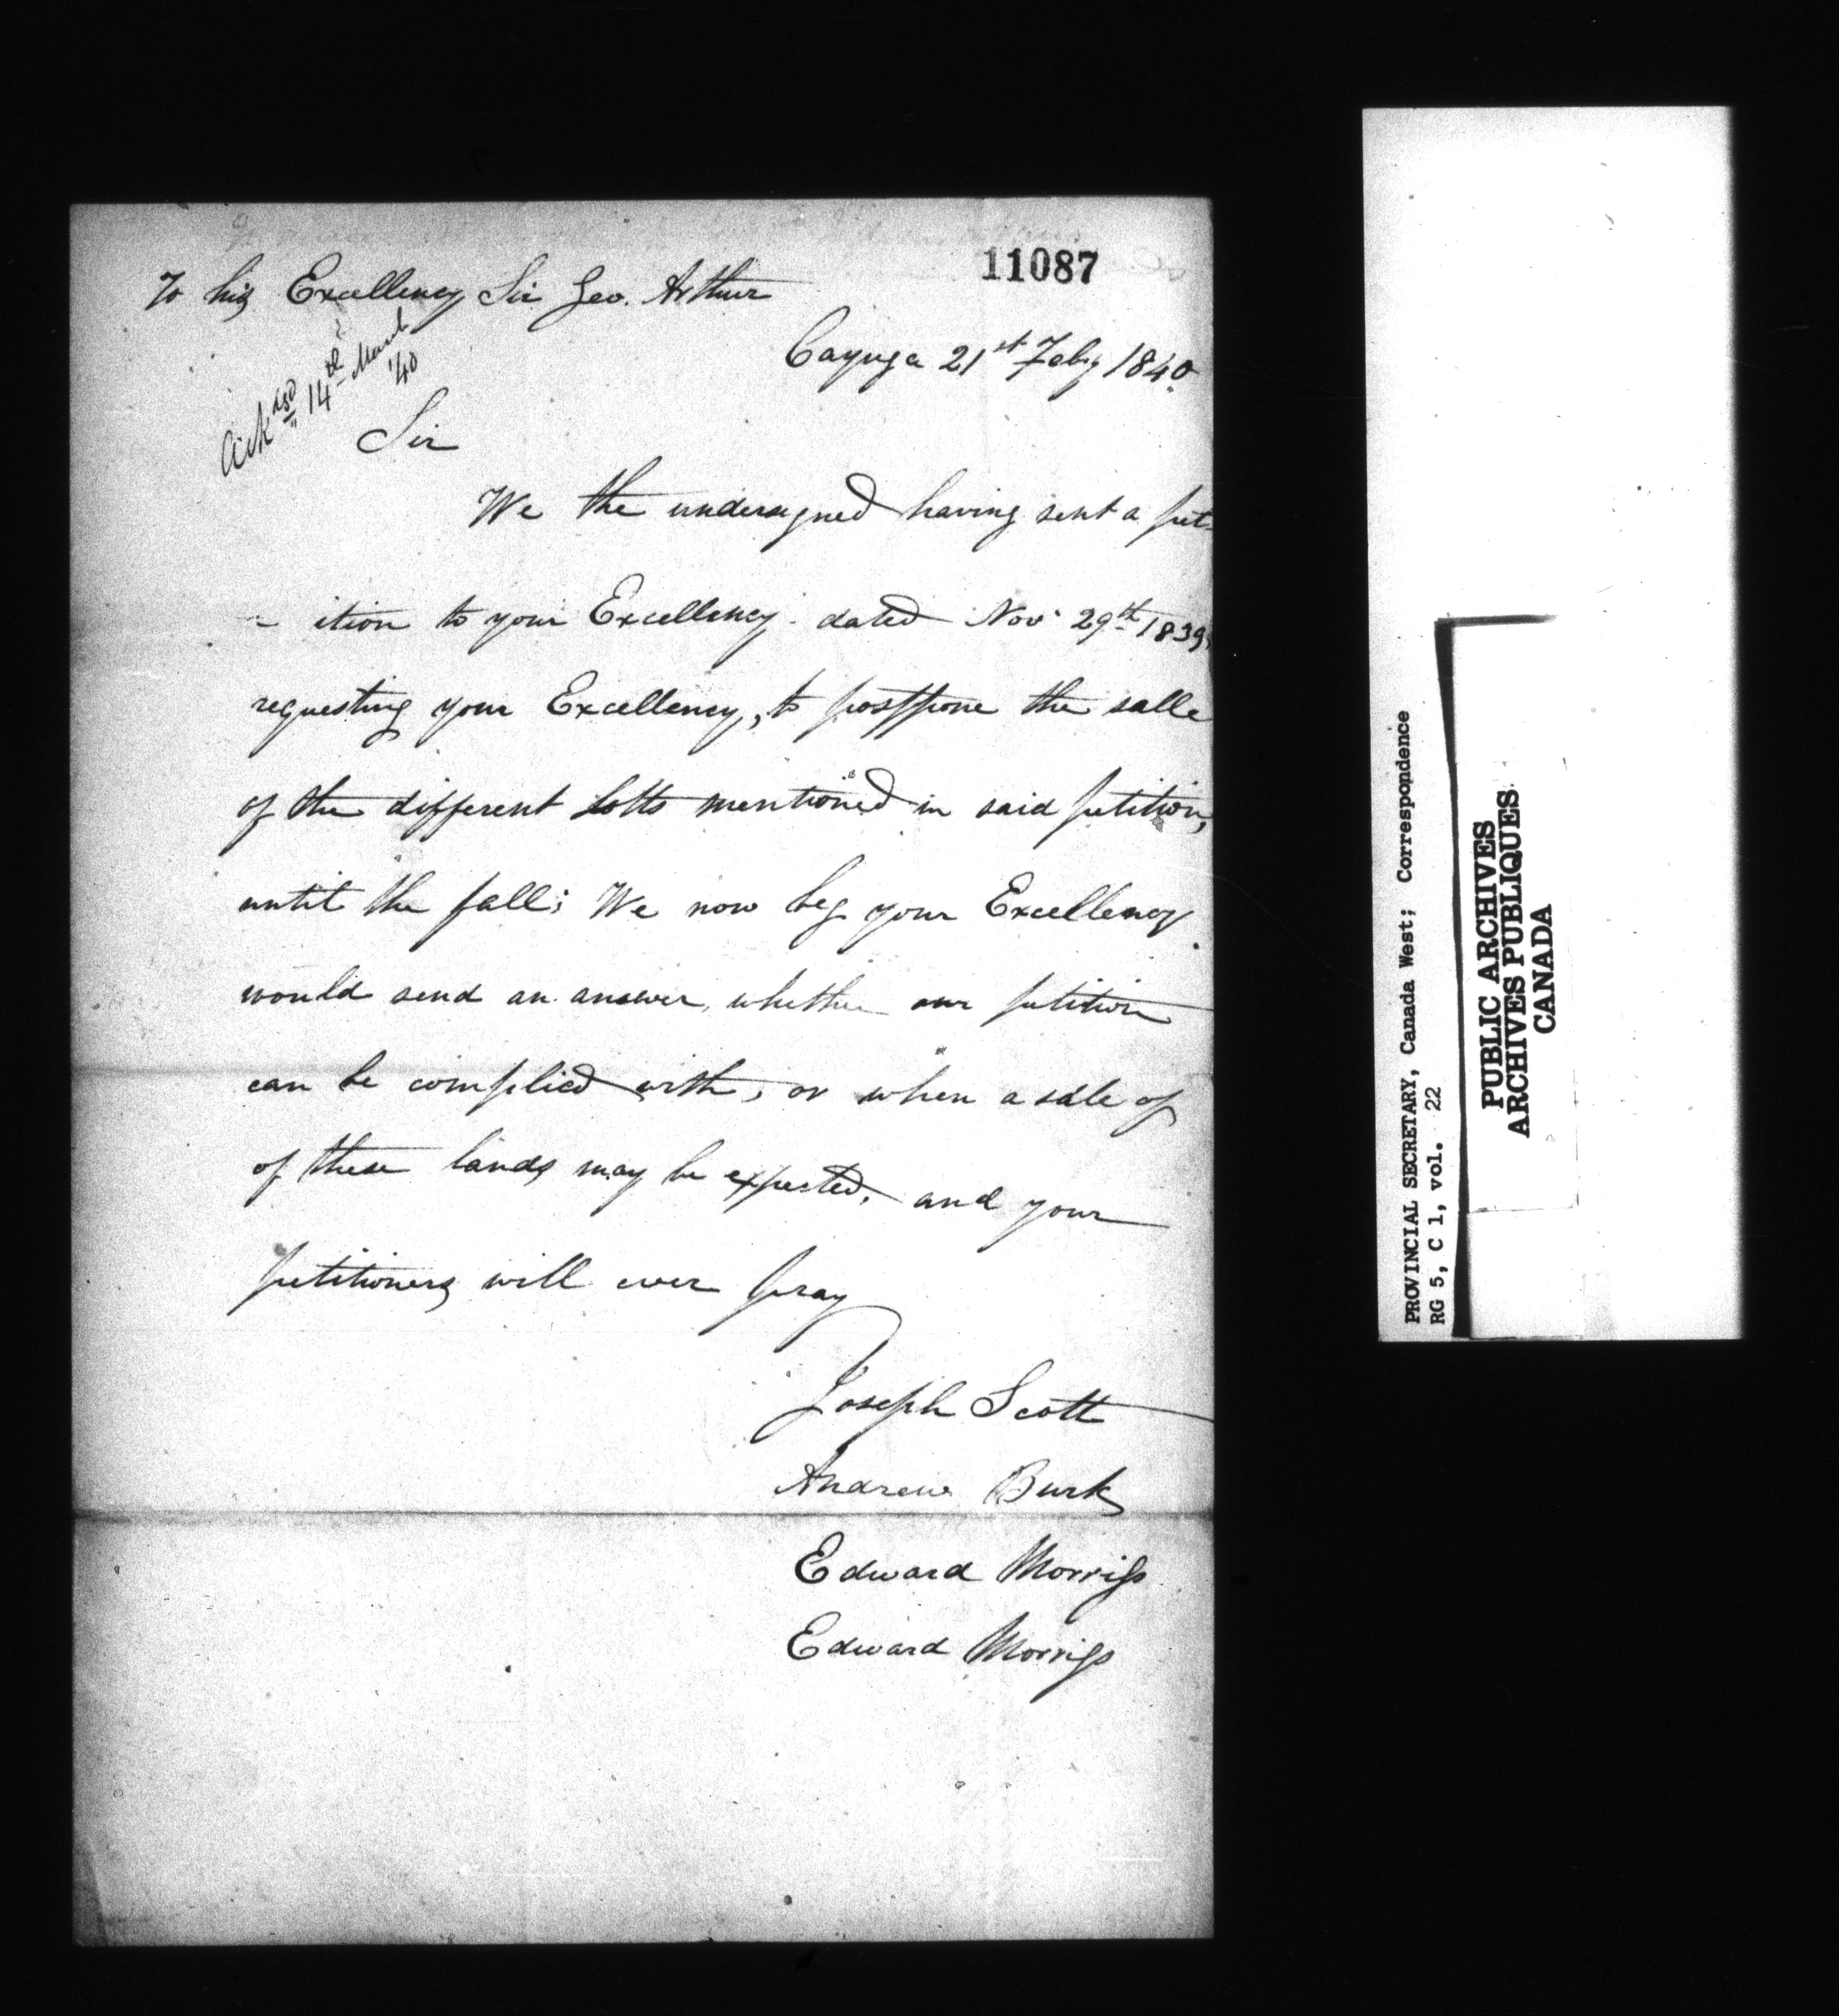 11087
To his Excellency Sir Geo. Arthur
Cayuga 21st Feby 1840
Ackd 14th March '40
Sir
We the undersigned having sent a pet-
- ition to your Excellency dated Nov. 29th 1839,
requesting your Excellency, to postpone the salle
of the different Lotts mentioned in said petition,
until the fall; We now beg your Excellency
would send an answer, whether our petition
can be complied with, or when a sale of
of these lands may be expected, and your
petitioners will ever pray
Joseph Scott
Andrew Burk
Edward Morriss
Edward Morriss
PROVINCIAL SECRETARY, Canada West; Correspondence
RG 5, C 1, vol. 22
PUBLIC ARCHIVES
ARCHIVES PUBLIQUES
CANADA